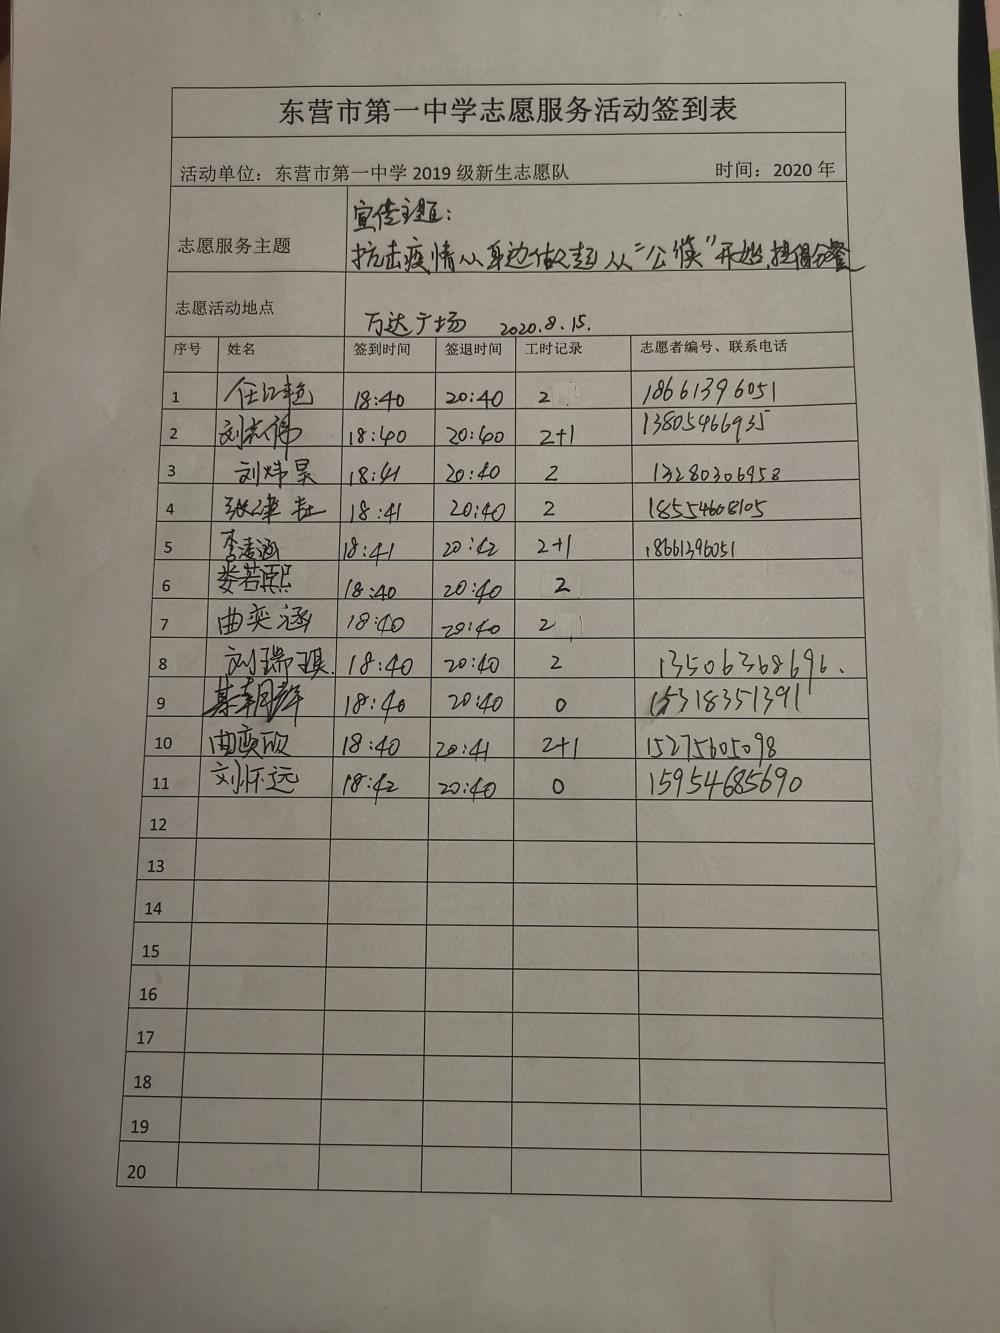 东营市第一中学志愿服务活动签到表
活动单位：东营市第一中学 2019 级新生志愿队 时间：2020 年
志愿服务主题 宣传主题：
抗击疫情从身边做起从“公筷”开始,提倡分餐
志愿活动地点 万达广场 2020.8.15.
序号 姓名 签到时间 签退时间 工时记录 志愿者编号、联系电话
1 任红艳 18:40 20:40 2 18661396051
2 刘志伟 18:40 20:40 2+1 13805466935
3 刘炜昊 18:41 20:40 2 13280306958
4 18:41 20:40 2 18554608105
5 李凌涵 18:41 20:42 2+1 18661396051
6 娄若熙 18:40 20:40 2
7 曲奕涵 18:40 20:40 2
8 刘瑞琪. 18:40 20:40 2 13506368696.
9 18:40 20:40 0 15318351391
10 曲奕欣 18:40 20:41 2+1 15275605098
11 刘怀远 18:42 20:40 0 15954685690
12
13
14
15
16
17
18
19
20